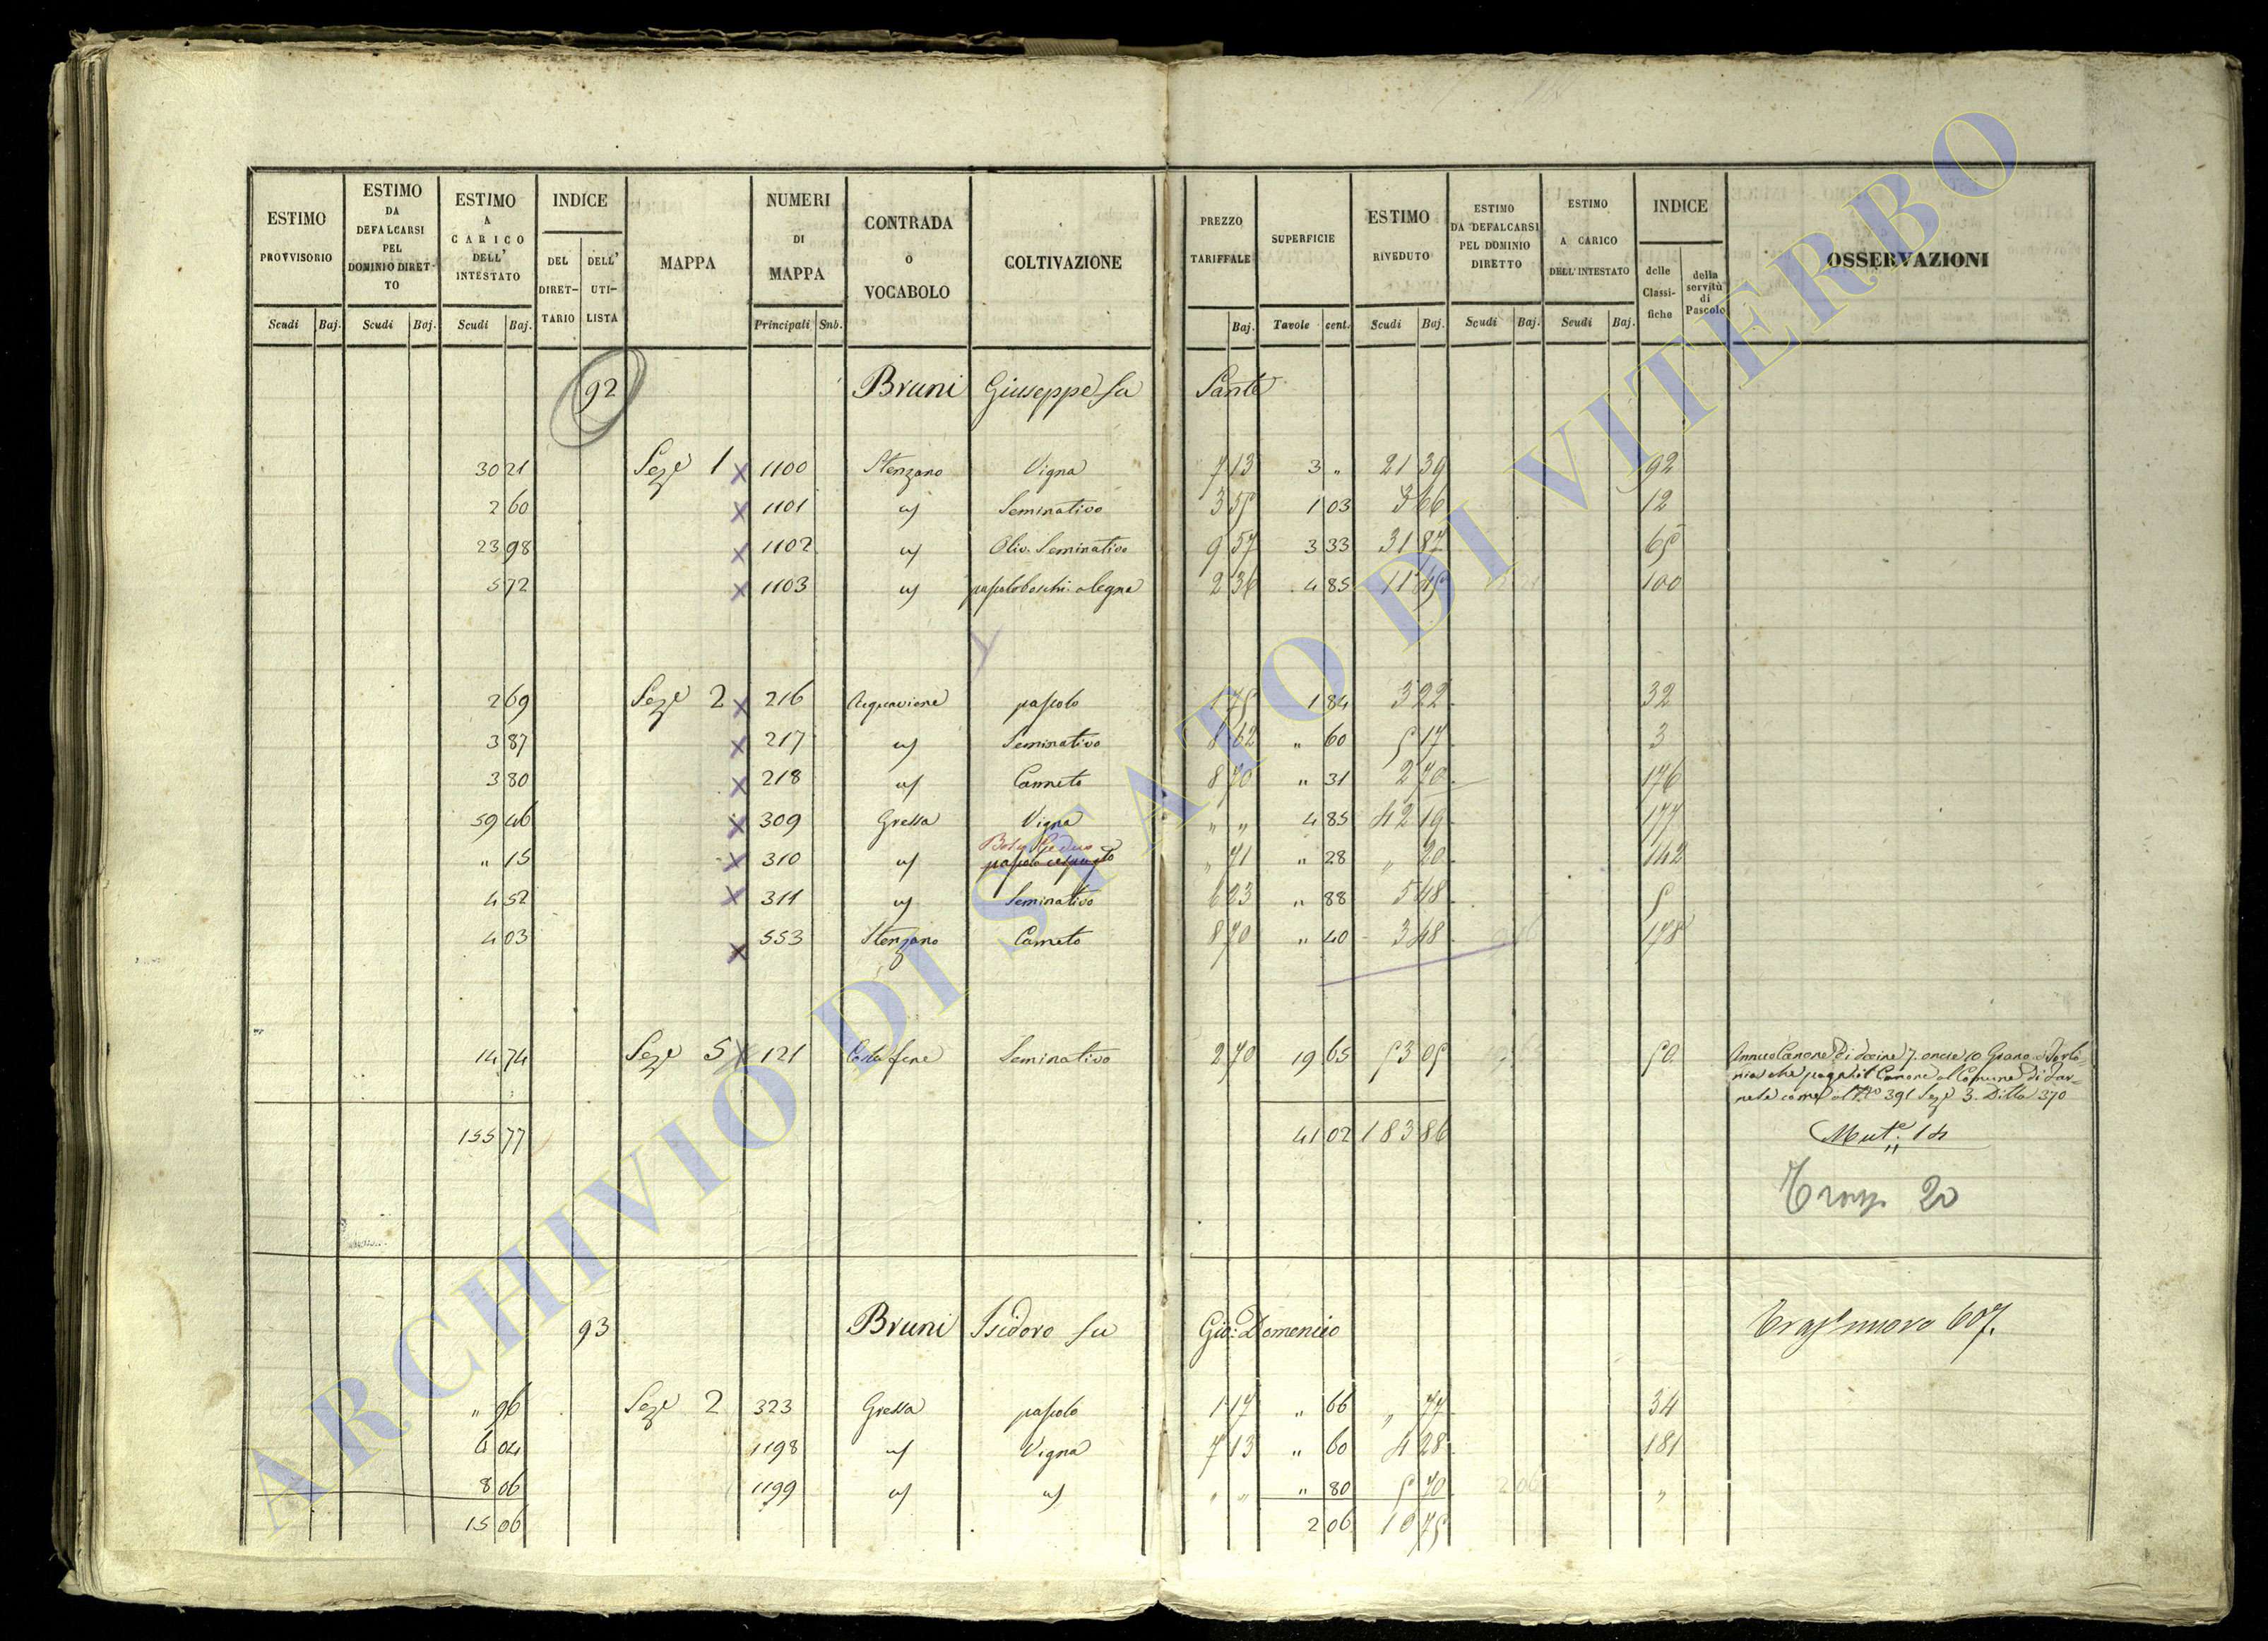 ESTIMO PROVVISORIO Scudi Baj.
ESTIMO DA DEFALCARSI PEL DOMINIO DIRET-TO Scudi Baj.
ESTIMO A CARICO DELL' INTESTATO Scudi Baj.
INDICE DEL DIRET-TARIO DELL' UTI-LISTA
MAPPA
NUMERI DI MAPPA Principali Sub.
CONTRADA O VOCABOLO
COLTIVAZIONE
PREZZO TARIFFALE Baj.
SUPERFICIE Tavole cent.
ESTIMO RIVEDUTO Scudi Baj.
ESTIMO DA DEFALCARSI PEL DOMINIO DIRETTO Scudi Baj.
ESTIMO A CARICO DELL'INTESTATO Scudi Baj.
INDICE delle Classi-fiche della servitù di Pascolo
OSSERVAZIONI
92 Bruni Giuseppe fu Sante
30 21 Seze 1 x 1100 Stenzano Vigna 7 13 3 " 21 39 92
2 60 x 1101 " Seminativo 3 55 1 03 3 66 12
23 98 x 1102 " Oliv. Seminativo 9 57 3 33 31 87 65
5 72 x 1103 " pascolo boschi. a legna 2 36 4 85 11 45 100
2 69 Seze 2 x 216 pascolo 1 75 1 84 3 22 32
3 87 x 217 " Seminativo 8 62 " 60 5 17 3
3 80 x 218 " Canneto 8 70 " 31 2 70 176
59 46 x 309 Grella Vigna " " 4 85 42 19 177
Bosco Ceduo
" 15 x 310 " pascolo cespugto " 71 " 28 " 20 142
4 52 x 311 " Seminativo 6 23 " 88 5 48 5
4 03 x 553 Stenzano Canneto 8 70 " 40 3 48 178
14 74 Seze 5 x 121 Seminativo 2 70 19 65 53 05 50
Annuo Canone di decine 7. oncie 10 Grano a Torlo-
nia che paga il Canone al Comune di Tar-
come al N.o 391 Seze 3. Ditta 370
155 77 41 02 183 86 Mut.e 14
Trasp. 20
93 Bruni Isidoro fu Gio: Domenico nuovo 607.
" 96 Seze 2 323 Grella pascolo 1 17 " 66 " 77 34
6 04 1198 " Vigna 7 13 " 60 4 28 181
8 06 1199 " " " " " 80 5 70 2 06 "
15 06 2 06 10 75
ARCHIVIO DI STATO DI VITERBO